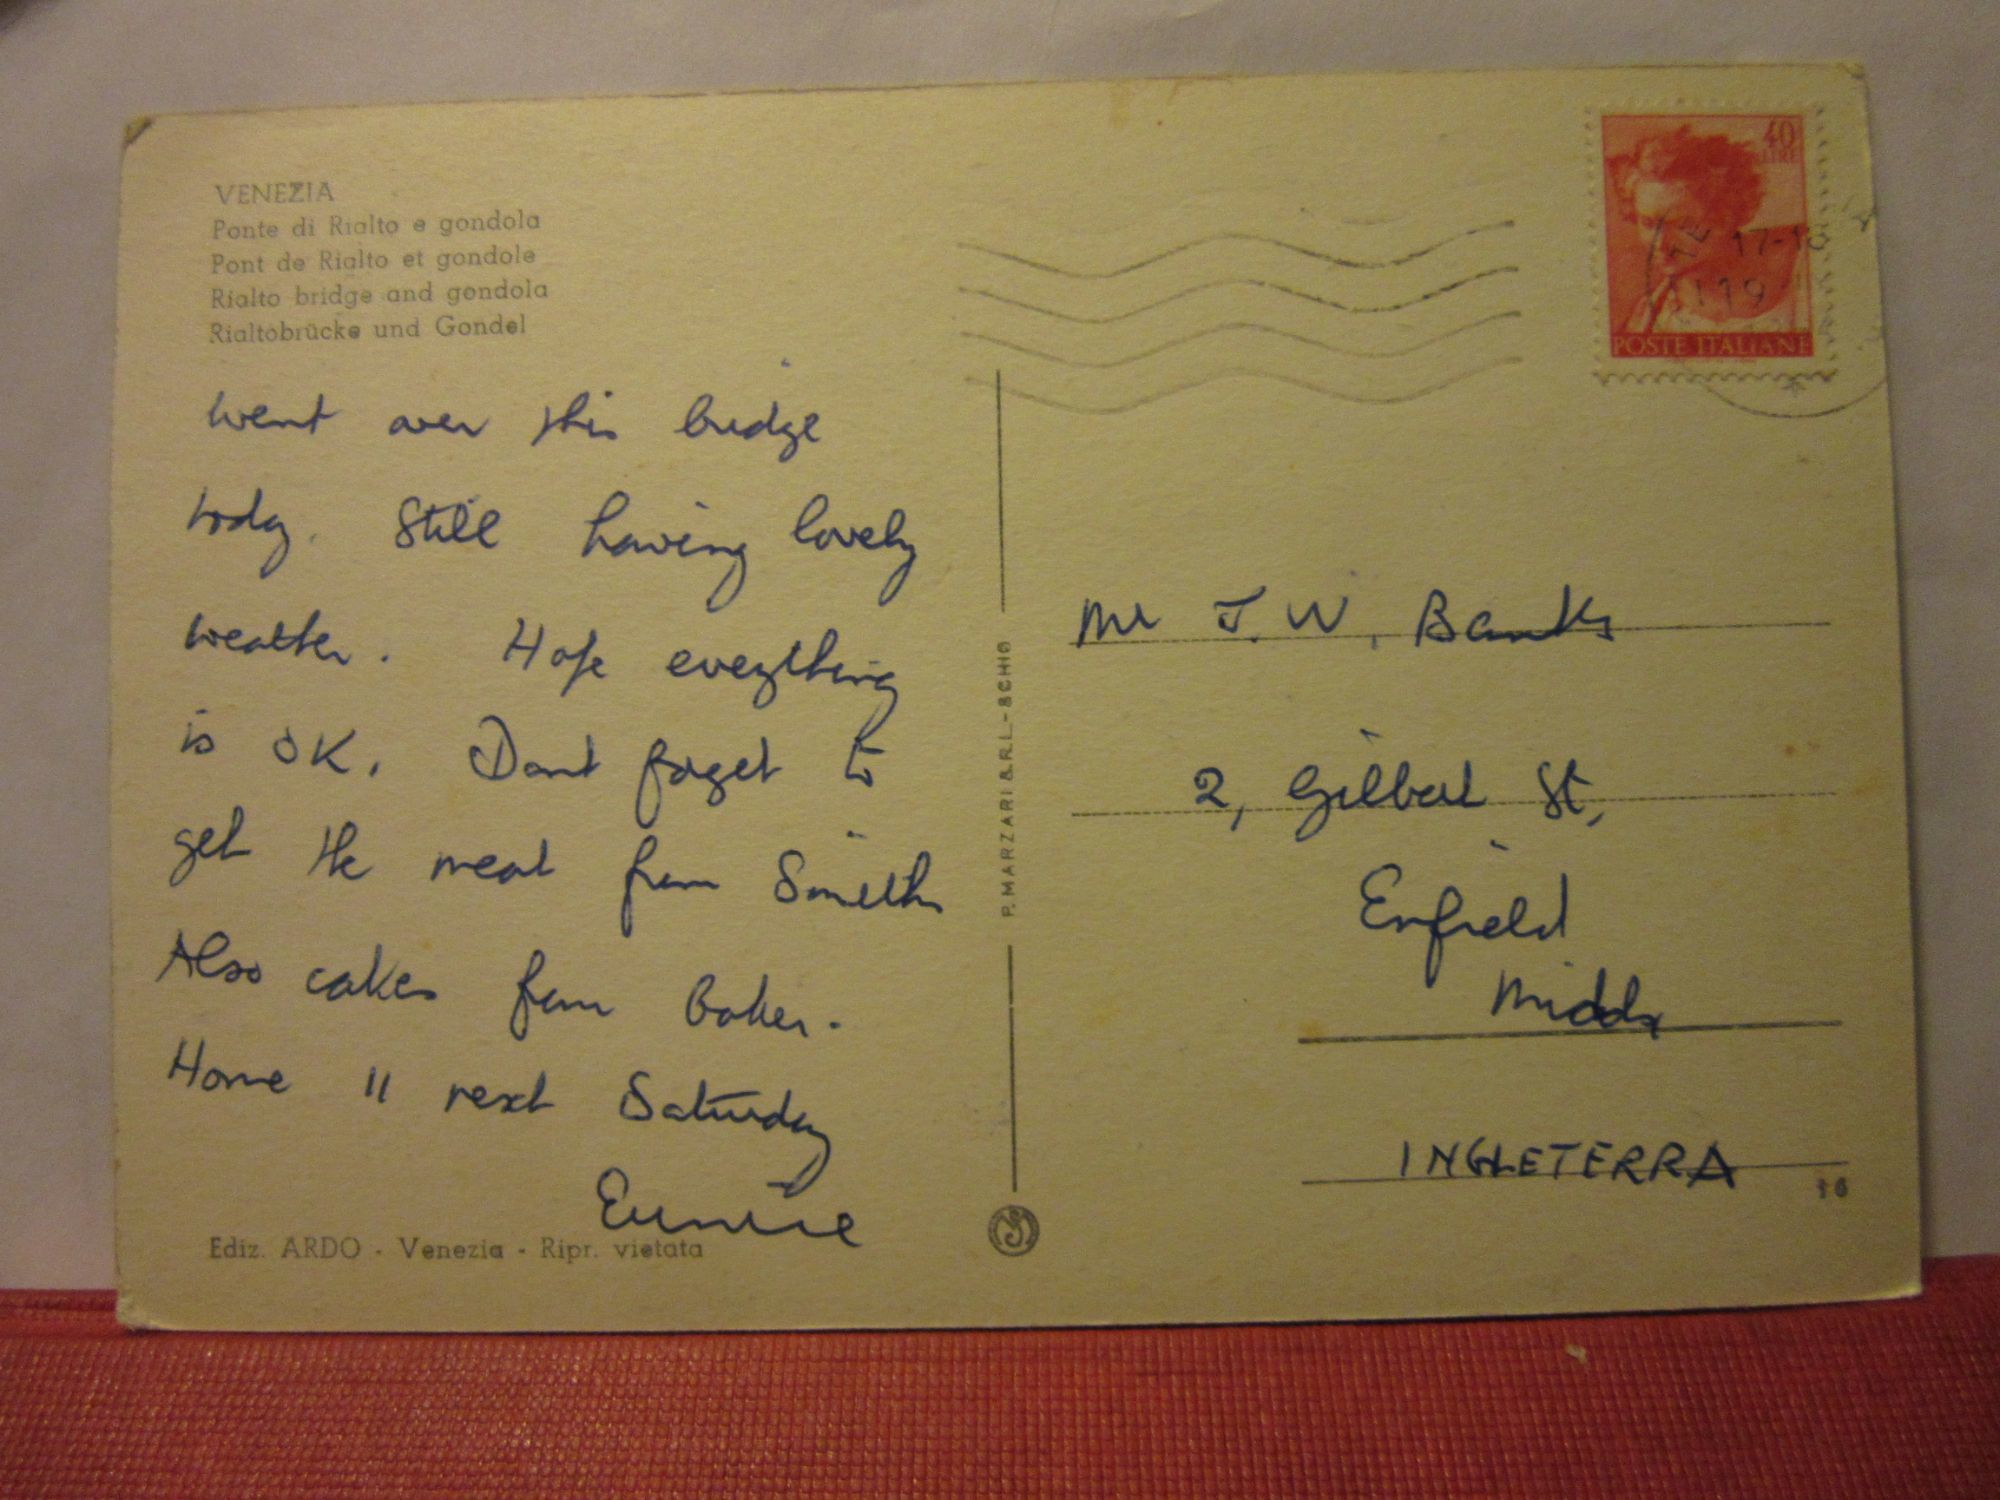 VENEZIA
Ponte di Rialto e gondola
Pont de Rialto et gondole
Rialto bridge and gondola
Rialtobrücke und Gondel
Went over this bridge
today. Still having lovely
weather. Hope everything
is OK. Dont forget to
get the meat from Smiths
Also cakes from baker.
Home 11 next Saturday
Eunice
Ediz. ARDO - Venezia - Ripr. vietata
P. MARZARI S.R.L. - SCHIO
40
LIRE
17-18
19
POSTE ITALIANE
Mr J. W. Banks
2, Gilbert St,
Enfield
Middx
INGLETERRA